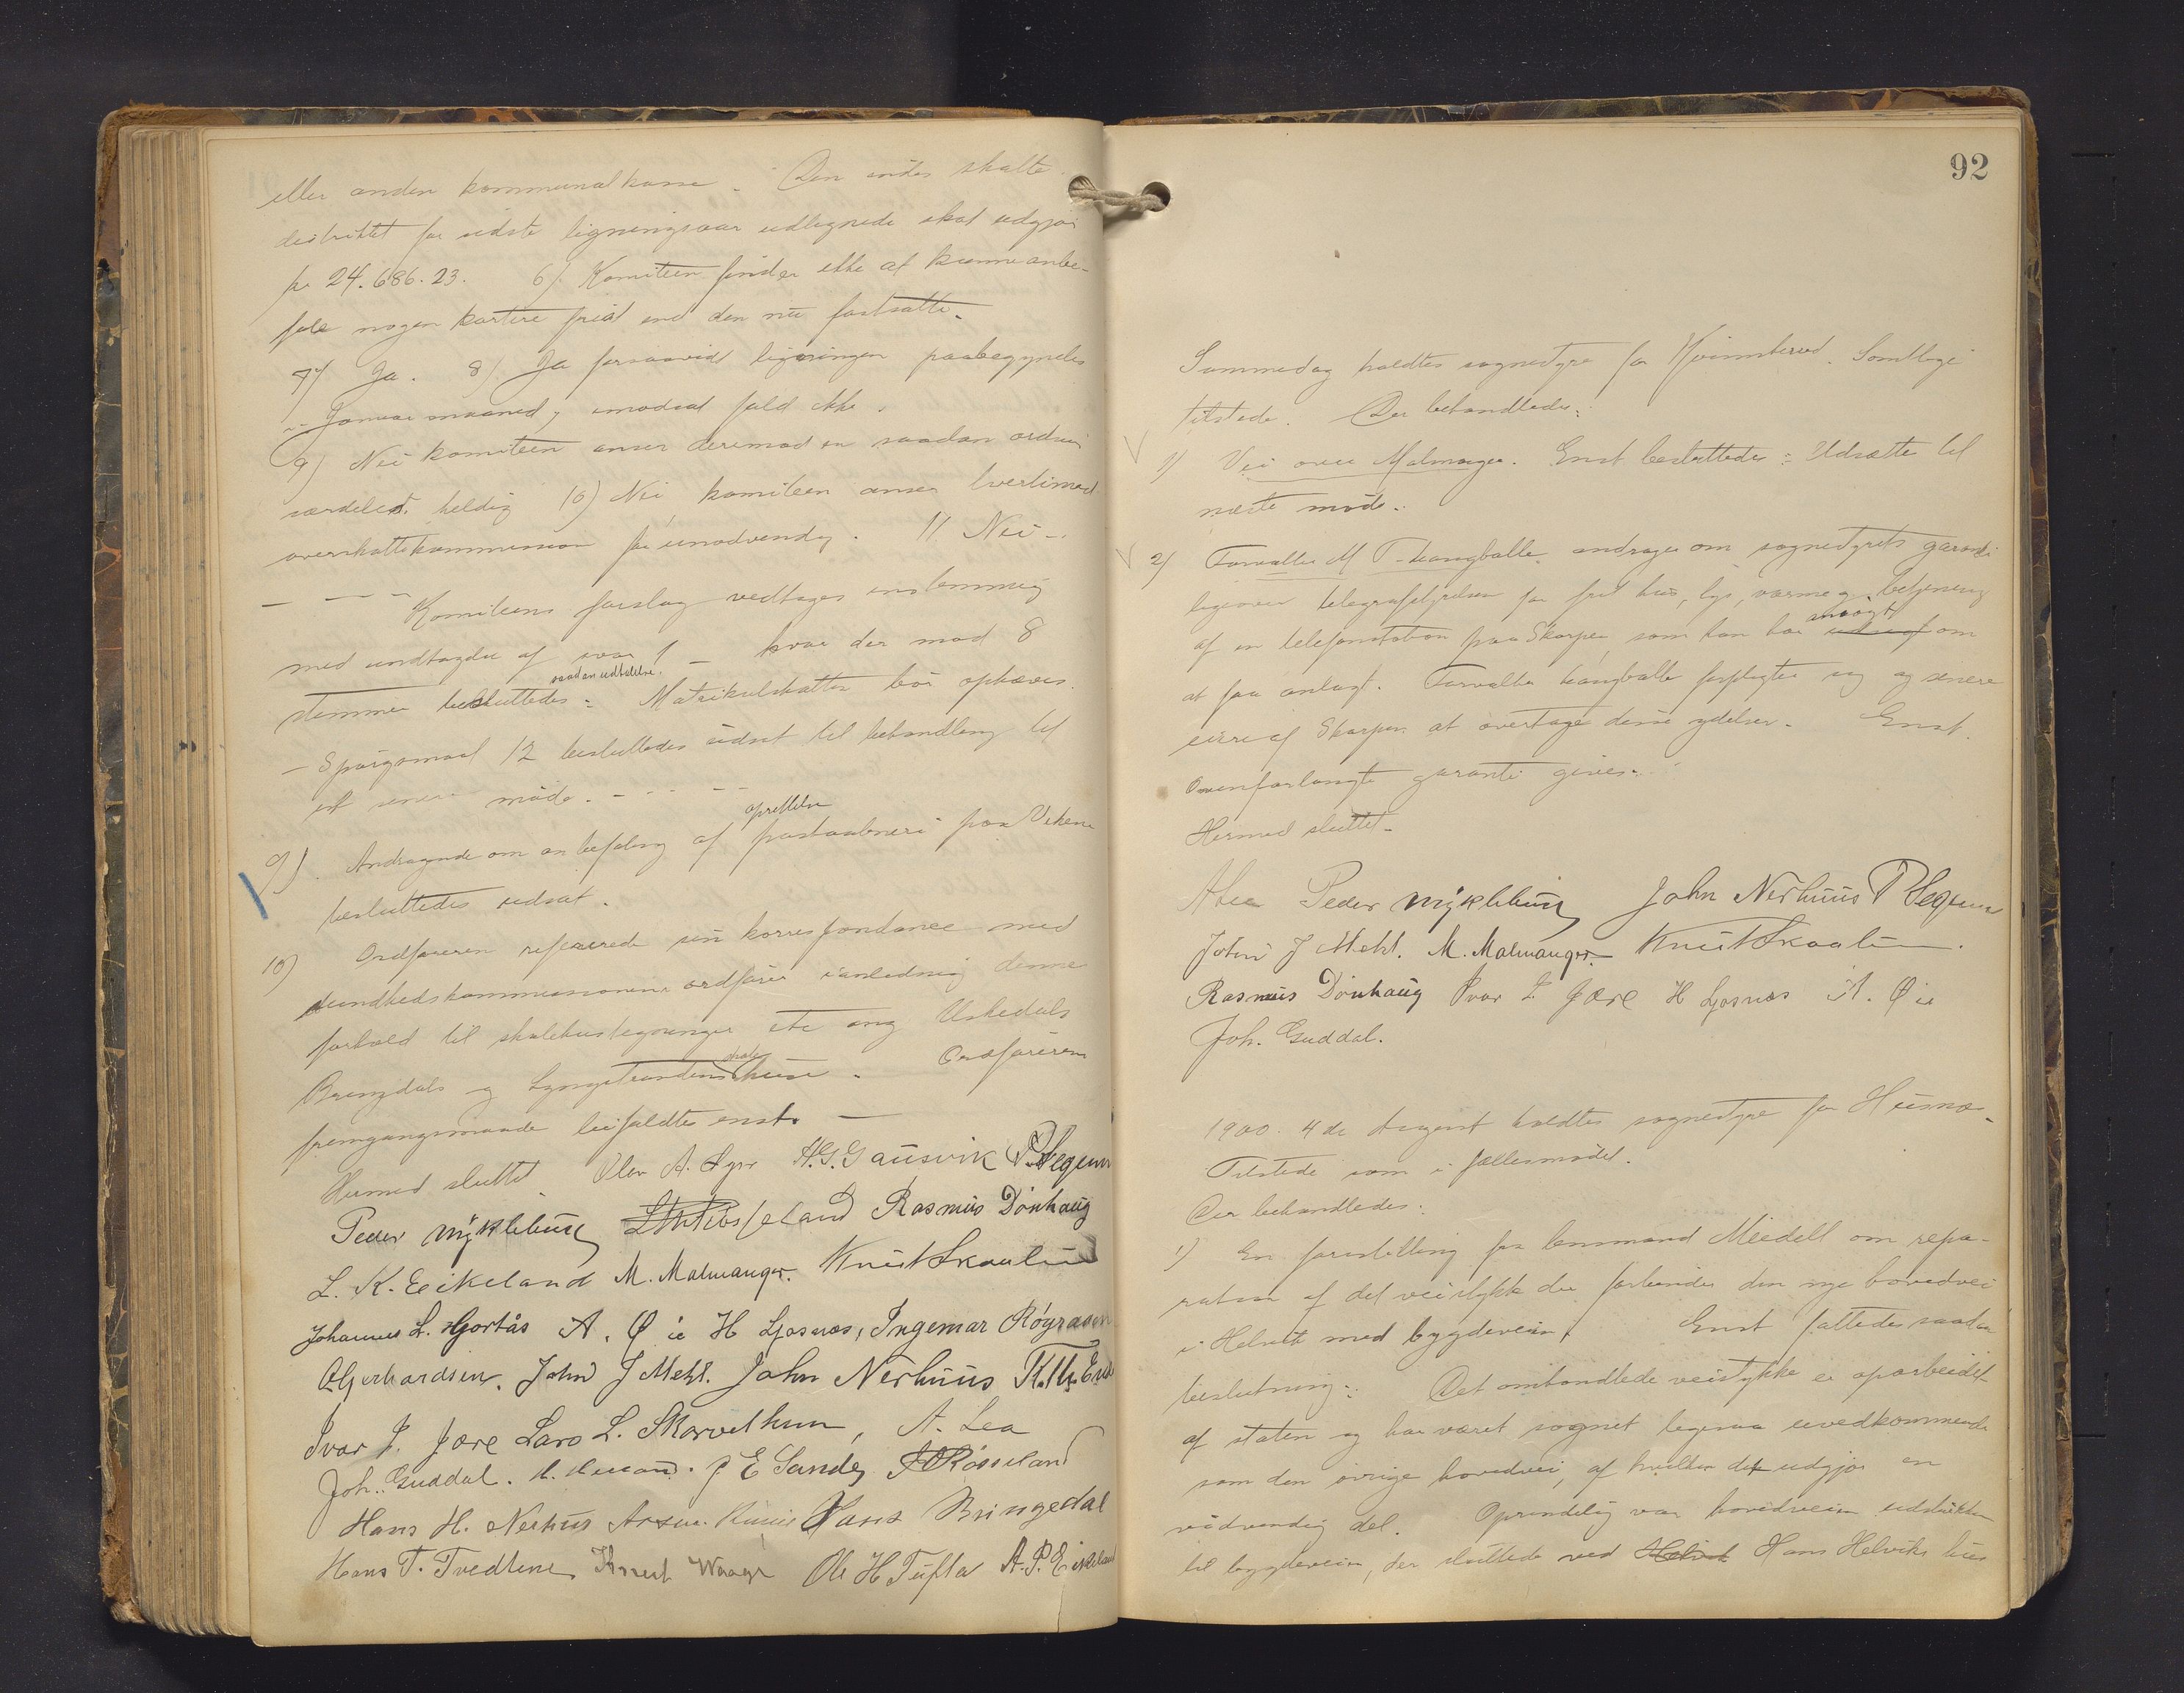 eller anden kommunalkasse. Den inden skatte
distriktet for sidste ligningsaar udlignede skat udgjør
kr 24.686.23. 6) Komiteen finder ikke at kunne anbe-
fale nogen kortere frist end den nu fastsatte.
7) Ja. 8) Ja forsaavidt ligningen paabegyndes
i Januar maaned, imodsat fald ikke.
9) Nei komiteen anser derimod en saadan ordning
særdeles heldig 10) Nei, komiteen anser tvertimod
overskattekommission for unødvendig. 11 Nei -
Komiteens forslag vedtages enstemmig
med undtagelse af svar 1 - hvor der mod 8
stemmer besluttedes saadan udtalelse: Matrikulskatten bør ophæves.
- Spørgsmaal 12 besluttedes udsat til behandling til
et senere møde. - - -
9). Andragende om anbefaling af oprettelse postaabneri paa Vikene
besluttedes udsat.
10) Ordføreren refererede sin korrespondance med
sundhedskommissionens ordfører i anledning denne
forhold til skolehustegninger etc ang Uskedals
Bringedals og Lyngstrandens skole huse. Ordførerens
fremgangsmaade bifaldtes enst. -
Hermed sluttet Olav A. Lyse H.G. Gausvik P Hegeim
Peder Myklebust Rasmus Dønhaug
L. K. Eeikeland M. Malmanger. Knut Skaalun
Johannes L. Hjortås A. Øie H Ljosnæs, Ingemar Røyrasen
O Gjerhardsen. John J Mehl. John Nerhuus K. Th. End
Ivar J. Jære Lars L. Skorvethun, A. Lea
Joh. Guddal. J E Sande J Røsseland
Hans H. Nerhus Hans Bringedal
Hans T. Tvedtene Knut Waage Ole H Tufta A. P. Eikeland
92
Sammedag holdtes sognestyre for Kvinnherred. Samtlige
tilstede. Der behandledes:
1) Vei over Malmanger. Enst. besluttedes: Udsætte til
næste møde.
2) Forvalter M T. Langballe andrager om sognestyrets garanti
ligeover telegrafstyrelsen for frit hus, lys, varme og betjening
af en telefonstation paa Skorpen, som han har ansøgt om
at faa anlagt. Forvalter Langballe forpligter sig og senere
eiere af Skorpen at overtage disse ydelser. Enst.
Ovenforlangte garanti gives.
Hermed sluttet.
A Lea Peder Myklebust John Nerhuus P Hegeim
John J Mehl. M. Malmanger. Knut Skaalun.
Rasmus Dønhaug Ivar J. Jære H Ljosnæs A. Øie
Joh. Guddal.
1900. 4de August holdtes sognestyre for Husnæs.
Tilstede som i fællesmødet.
Der behandledes:
1) En forestilling fra lensmand Meidell om repa-
ration af det veistykke der forbinder den nye hovedvei
i Helvik med bygdeveien. Enst fattedes saadan
beslutning: Det omhandlede veistykke er oparbeidet
af staten og har været sognet ligesaa uvedkommende
som den øvrige hovedvei, af hvilken det udgjør en
nødvendig del. Oprindelig var hovedveien udstukken
til bygdeveien, der sluttede ved Helvik Hans Helviks hus